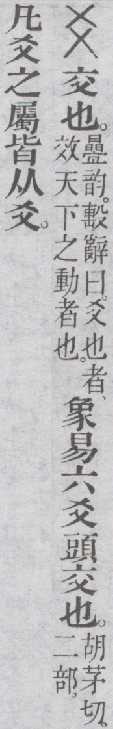 爻交也。疊韵。毄辭曰。爻也者、效天下之動者也。象易六爻頭交也。胡茅切。二部。
凡爻之屬皆从爻。